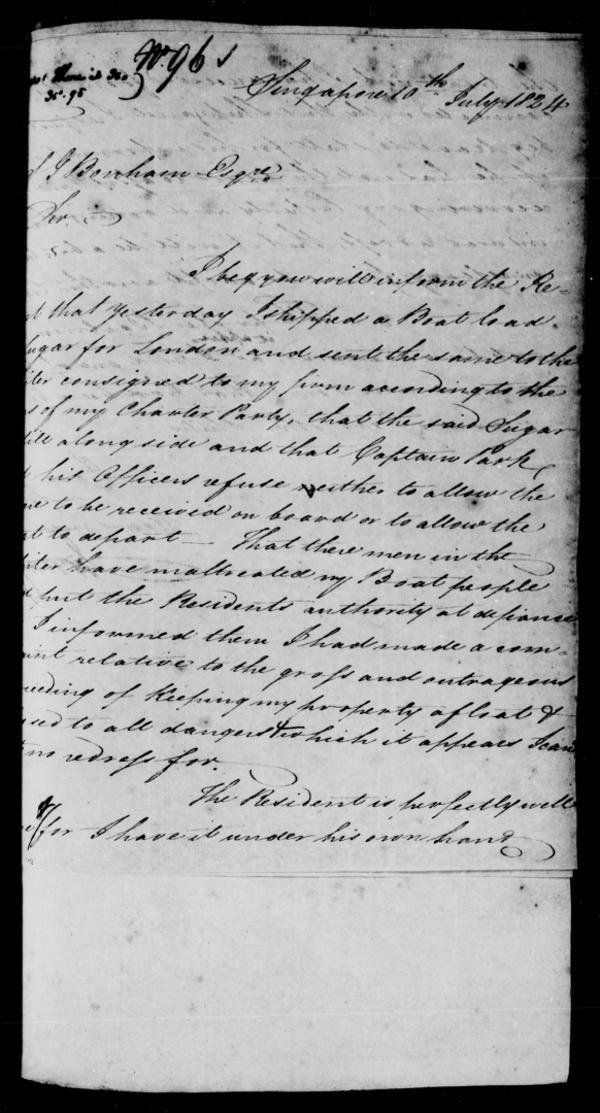 No. 96
There is no
No. 95
Singapore 10th July 1824
J Bonham Esqre
Sir
I beg you will inform the Re-
that yesterday I shipped a Boat load
ugar for London and sent the same to the
iter consigned to my firm according to the
s of my Charter Party, that the said Sugar
till along side and that Captain Park
his Officers refuse neither to allow the
me to be received on board or to allow the
at to depart — That these men in the
iter have maltreated my Boat people
d put the Residents authority at defiance
I informed them I had made a com-
aint relative to the gross and outrageous
ceeding of Keeping my property afloat &
osed to all dangers & which it appears I can
t no redress for.
The Resident is perfectly well
for I have it under his own hand